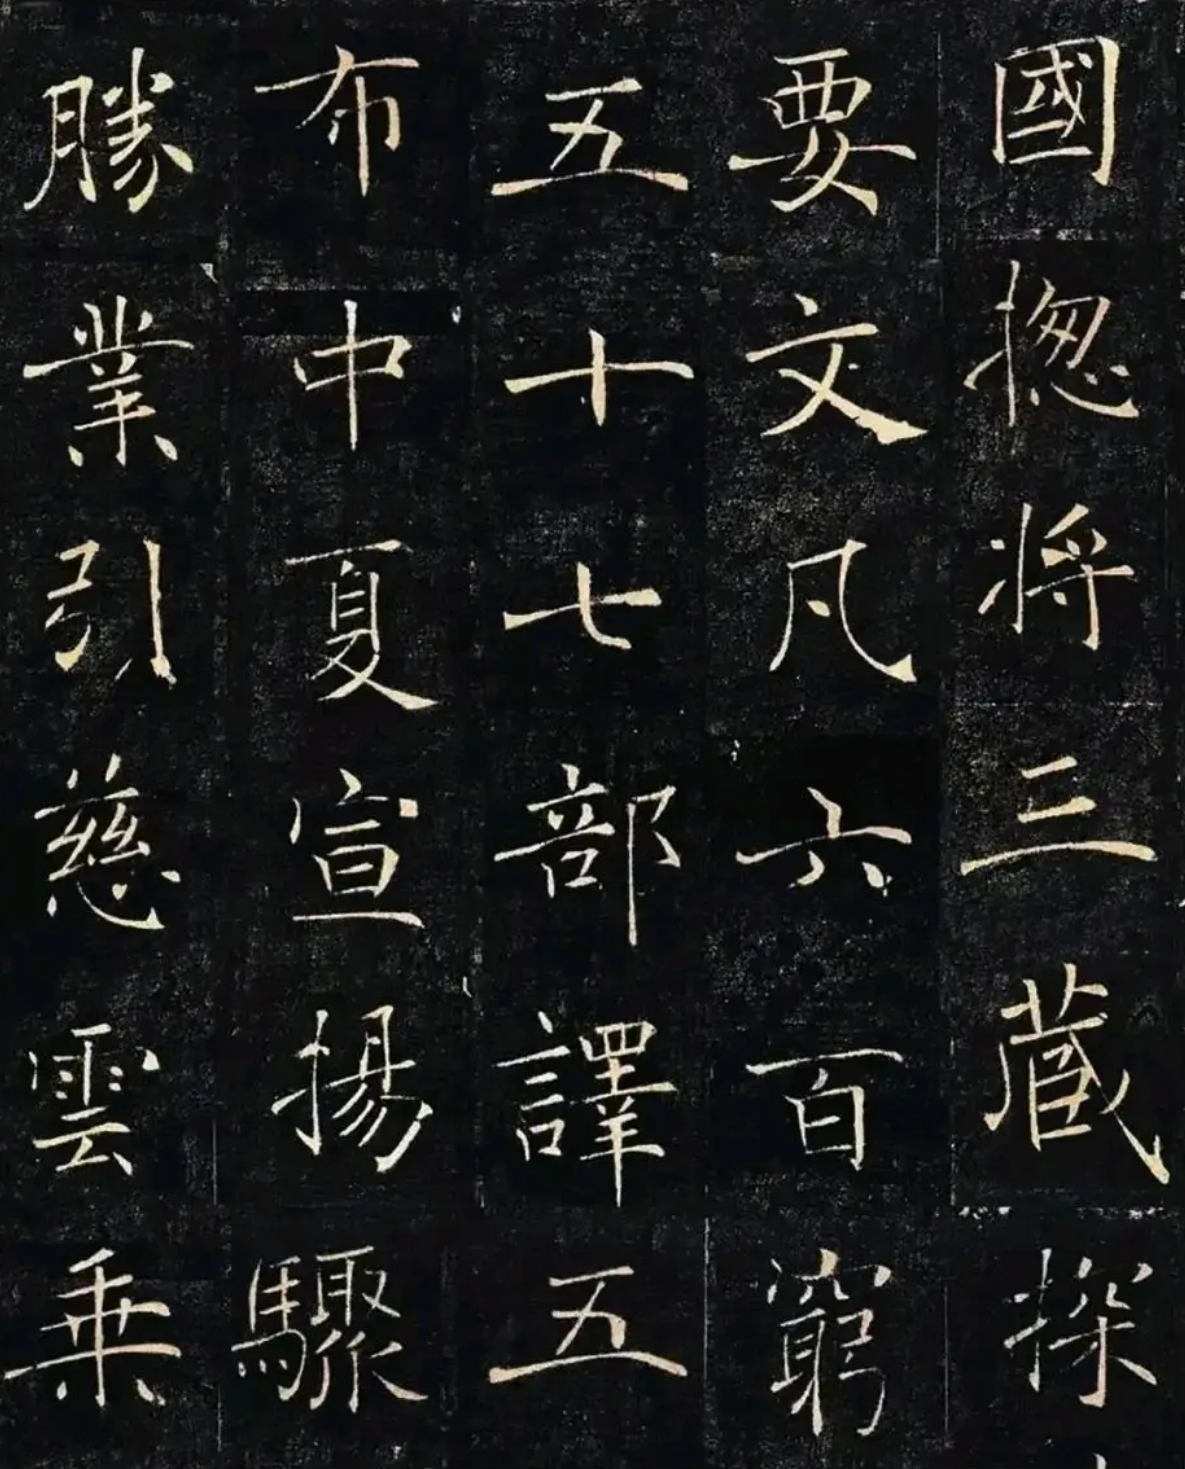 國揔將三藏探
要文凡六百窮
五十七部譯五
布中夏宣揚驟
勝業引慈雲乗